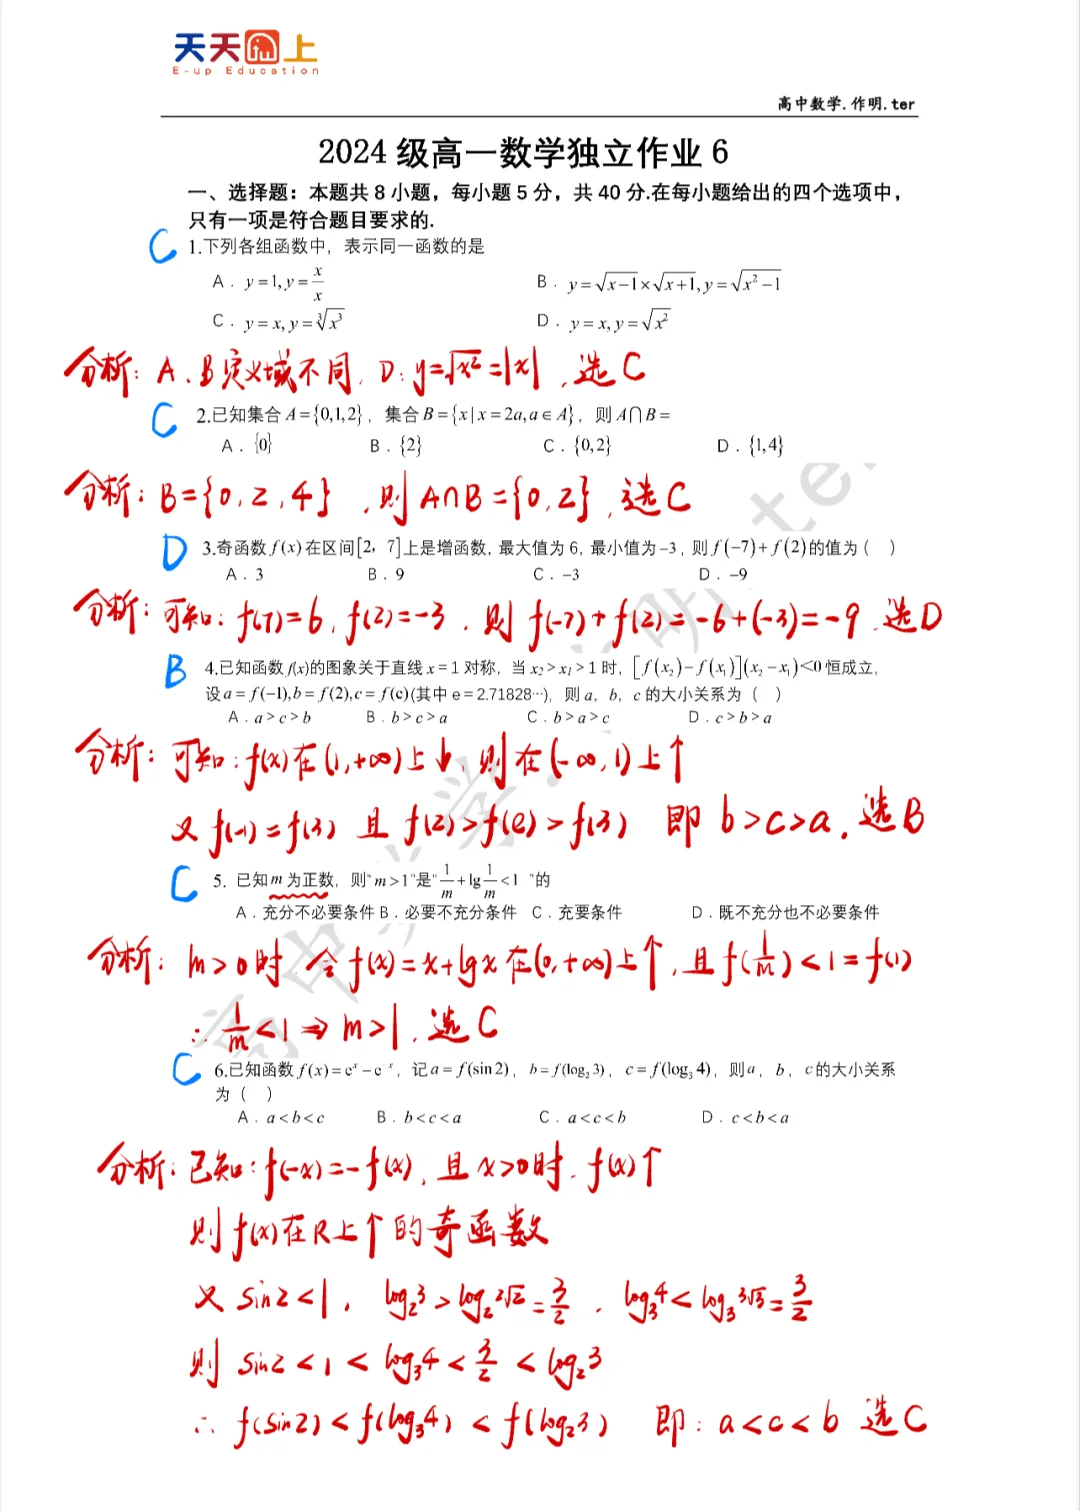 天天向上
E-up Education
高中数学.作明.ter
2024 级高一数学独立作业 6
一、选择题：本题共 8 小题，每小题 5 分，共 40 分.在每小题给出的四个选项中，
只有一项是符合题目要求的.
C 1.下列各组函数中，表示同一函数的是
A．y=1,y=x/x B．y=√(x−1)×√(x+1),y=√(x²−1)
C．y=x,y=∛(x³) D．y=x,y=√(x²)
分析：A、B定义域不同，D：y=√x²=|x|，选C
C 2.已知集合 A={0,1,2}，集合 B={x|x=2a,a∈A}，则 A∩B=
A．{0} B．{2} C．{0,2} D．{1,4}
分析：B={0,2,4}，则A∩B={0,2}，选C
D 3.奇函数 f(x) 在区间[2，7]上是增函数，最大值为 6，最小值为 −3，则 f(−7)+f(2) 的值为（ ）
A．3 B．9 C．−3 D．−9
分析：可知：f(7)=6，f(2)=-3，则 f(-7)+f(2)=-6+(-3)=-9，选D
B 4.已知函数 f(x)的图象关于直线 x=1 对称，当 x₂>x₁>1 时，[f(x₂)−f(x₁)](x₂−x₁)<0 恒成立，
设 a=f(−1),b=f(2),c=f(e)(其中 e=2.71828⋯)，则 a，b，c 的大小关系为（ ）
A．a>c>b B．b>c>a C．b>a>c D．c>b>a
分析：可知：f(x)在(1,+∞)上↓，则在(-∞,1)上↑
又 f(-1)=f(3) 且 f(2)>f(e)>f(3) 即 b>c>a．选B
C 5. 已知 m 为正数，则“m>1”是“1/m+lg 1/m<1 ”的
A．充分不必要条件 B．必要不充分条件 C．充要条件 D．既不充分也不必要条件
分析：m>0时，令 f(x)=x+lgx 在(0,+∞)上↑，且 f(1/m)<1=f(1)
∴ 1/m<1⇒m>1，选C
C 6.已知函数 f(x)=eˣ−e⁻ˣ，记 a=f(sin2)，b=f(log₂3)，c=f(log₃4)，则 a，b，c 的大小关系
为（ ）
A．a<b<c B．b<c<a C．a<c<b D．c<b<a
分析：已知：f(-x)=-f(x)，且 x>0时，f(x)↑
则 f(x)在R上↑的奇函数
又 sin2<1，log₂3>log₂2√2=3/2，log₃4<log₃3√3=3/2
则 sin2<1<log₃4<3/2<log₂3
∴ f(sin2)<f(log₃4)<f(log₂3) 即：a<c<b 选C
高中数学.作明.ter